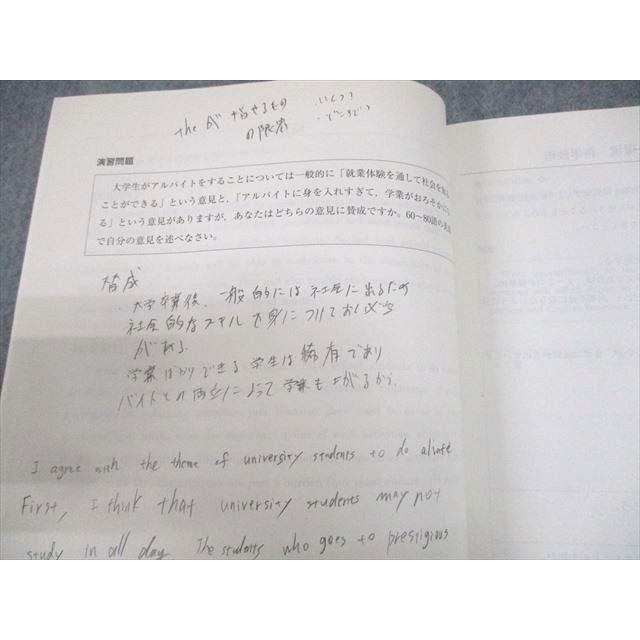 the が 指せるもの ・いくつ?
の限界 ・どこまで?
演習問題
大学生がアルバイトをすることについては一般的に「就業体験を通して社会を知る
ことができる」という意見と,「アルバイトに身を入れすぎて,学業がおろそかにな
る」という意見がありますが,あなたはどちらの意見に賛成ですか。60〜80語の英語
で自分の意見を述べなさい。
賛成
・大学卒業後、一般的には社会に出るため
社会的なスキルを身につけておく必要
がある.
学業ばかりできる学生は稀有であり
バイトとの両立によって学業も上がるから.
I agree with the theme of university students to do
First, I think that university students may not
study in all day. The students who goes to prestigious